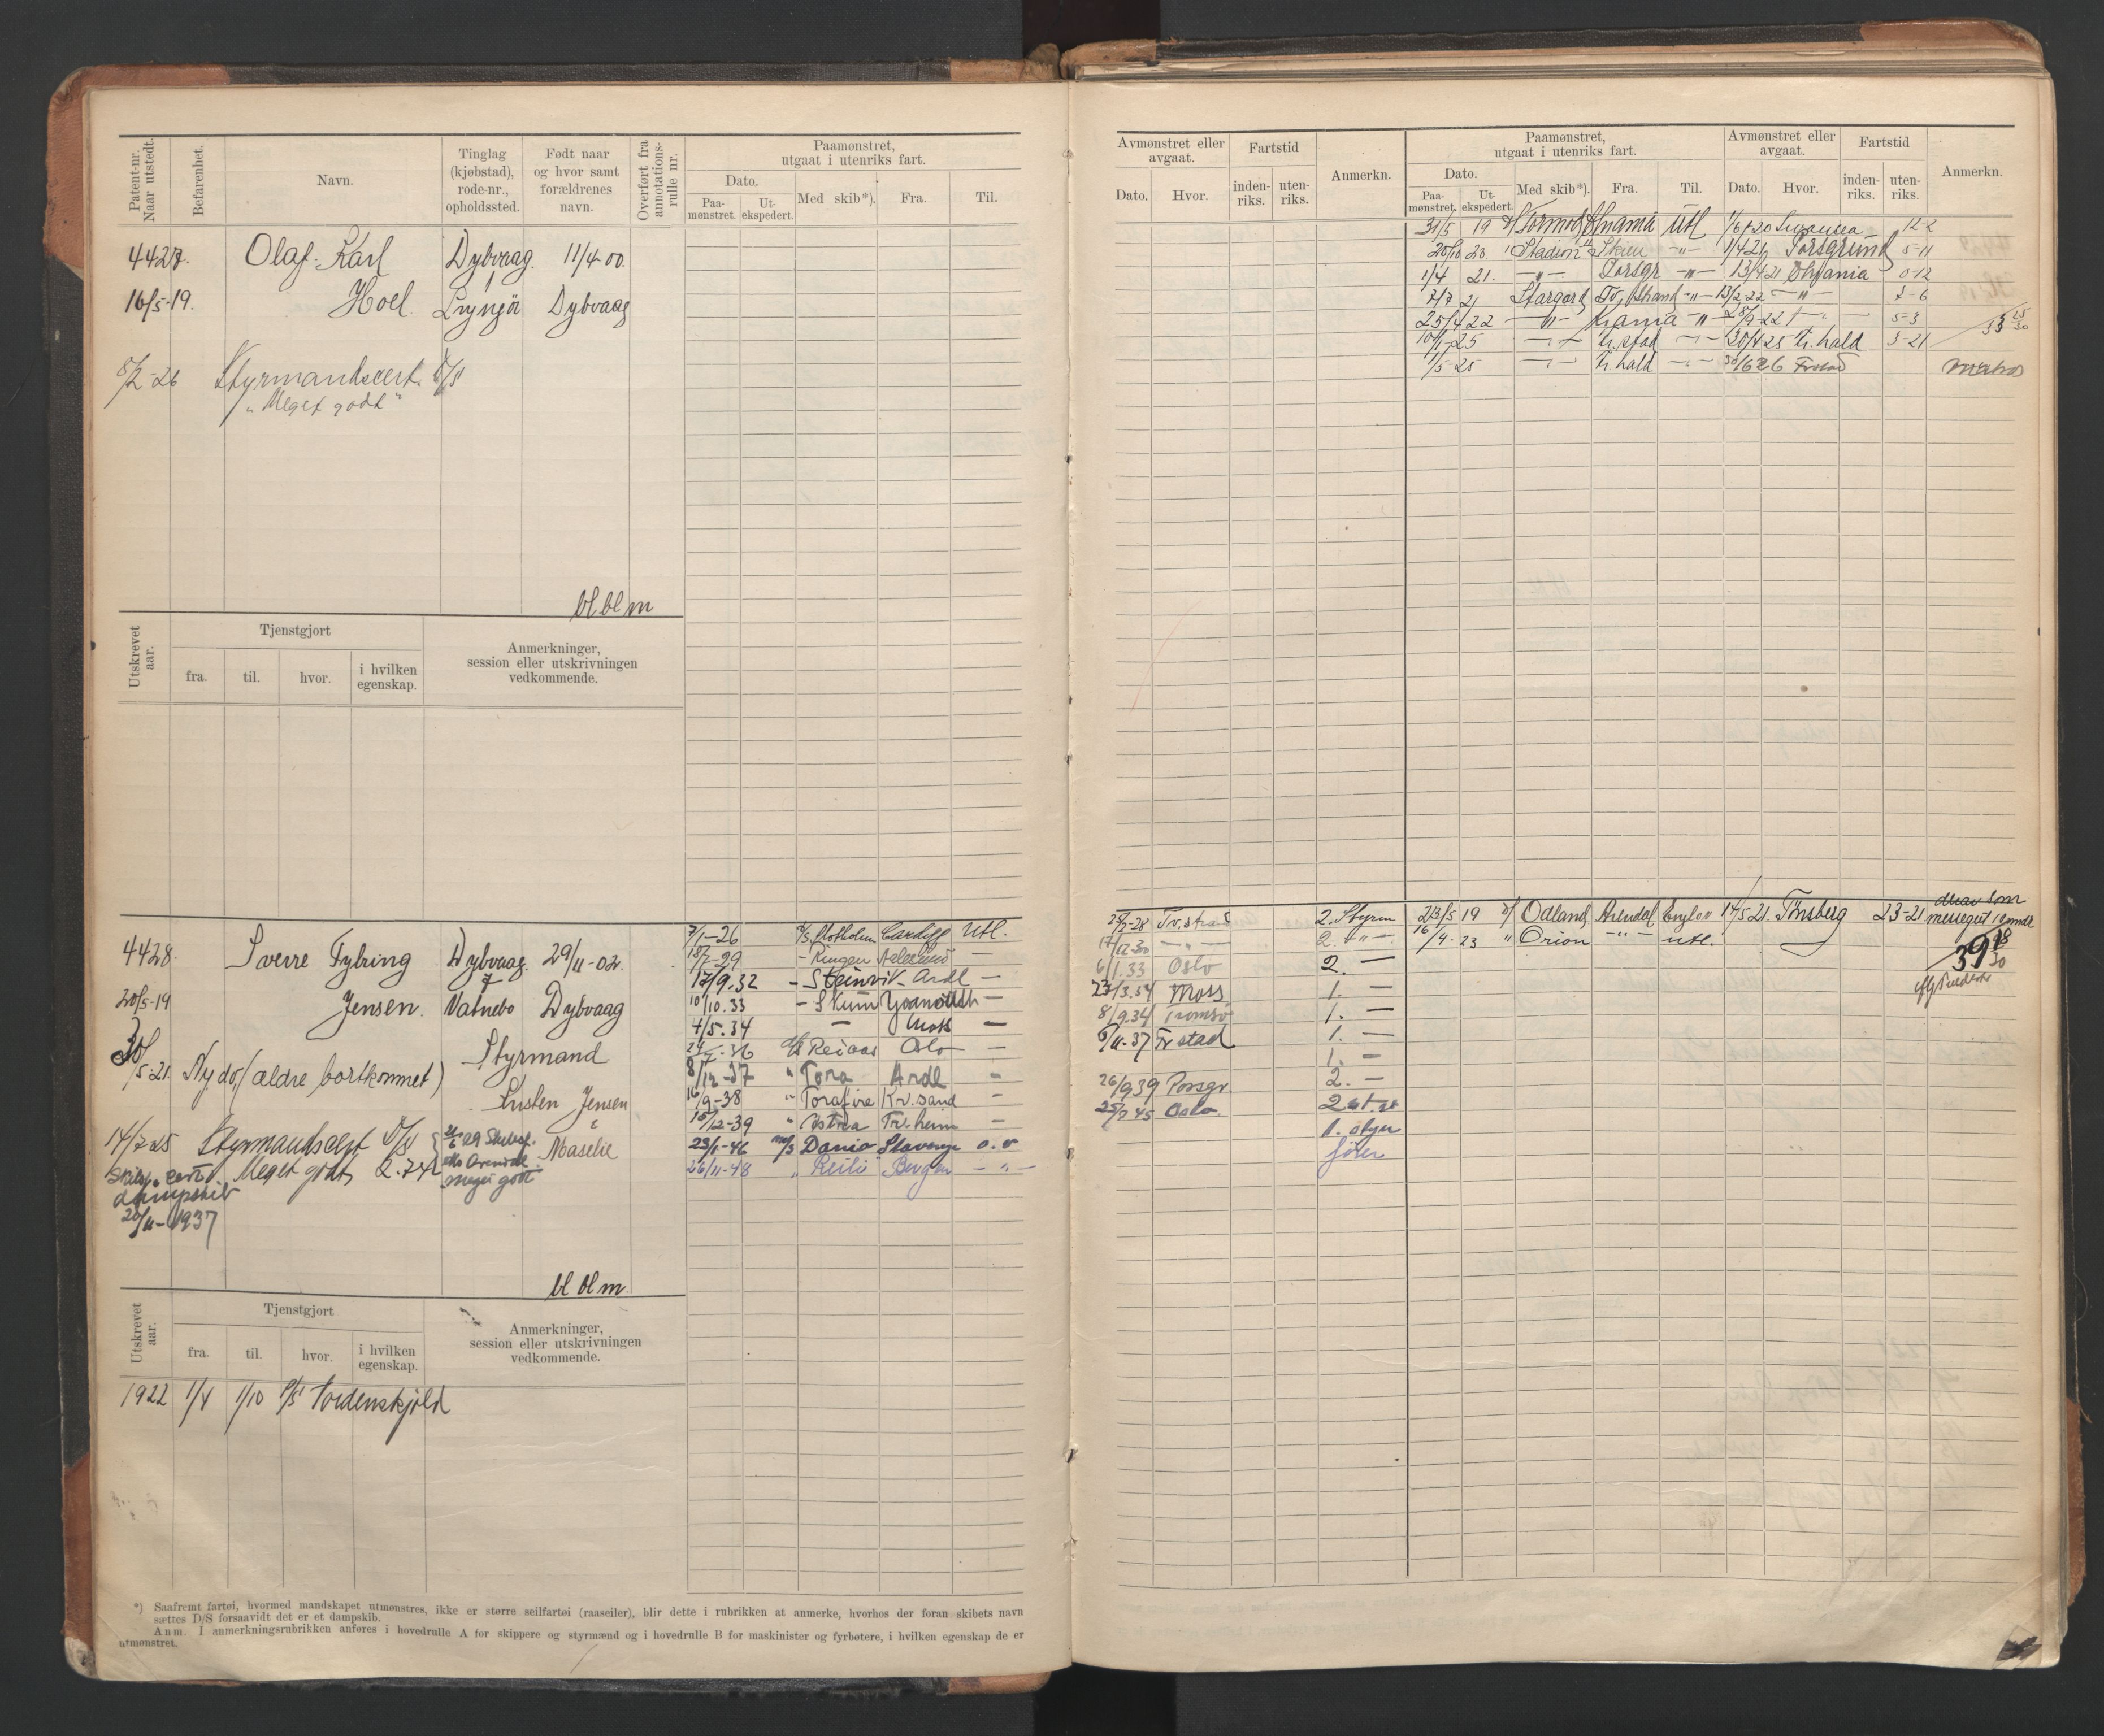 Patent-nr. Naar utstedt.
Befarenhet.
Navn.
Tinglag (kjøbstad), rode-nr., opholdssted.
Født naar og hvor samt forældrenes navn.
Overført fra annotations-rulle nr.
Paamønstret, utgaat i utenriks fart.
Dato.
Paa-mønstret.
Ut-ekspedert.
Med skib*).
Fra.
Til.
4427.
Olaf Karl
Dybvaag
11/4-00.
16/5-19.
Hoel.
Lyngör
Dybvaag
8/2-26
Styrmandscert. D/S
"Meget godt"
bl bl m
Utskrevet aar.
Tjenstgjort
fra.
til.
hvor.
i hvilken egenskap.
Anmerkninger, session eller utskrivningen vedkommende.
4428.
Sverre Fybring
Dybvaag
29/11-02.
20/5-19
Jensen.
Vatnebo
Dybvaag
30/5-21. Ny do, (ældre bortkommet)
Styrmand
Jensen
17/2 25 Styrmandscert D/S
Maselie
Meget godt
meget godt
dampskib
20/11-1937
7/1-26 Cardiff Utl.
18/7-29 - Ringen Aalesund -
17/9.32 - Steinvik - Ardl -
10/10.33 - Skum
4/5.34 - Moss -
Oslo -
8/12-37 " Tora Ardl -
16/9-38 " Torafire Kr.sand -
15/12-39 " Astrea Tr.heim -
23/1-46 m/s Dania
26/11-48 " Bergen - " -
bl bl m
Utskrevet aar.
Tjenstgjort
fra.
til.
hvor.
i hvilken egenskap.
Anmerkninger, session eller utskrivningen vedkommende.
1922 1/4 1/10 P/S Tordenskjold
*) Saafremt fartøi, hvormed mandskapet utmønstres, ikke er større seilfartøi (raaseiler), blir dette i rubrikken at anmerke, hvorhos der foran skibets navn
sættes D/S forsaavidt det er et dampskib.
Anm. I anmerkningsrubrikken anføres i hovedrulle A for skippere og styrmænd og i hovedrulle B for maskinister og fyrbøtere, i hvilken egenskap de er
utmønstret.
Avmønstret eller avgaat.
Dato.
Hvor.
Fartstid
inden-riks.
uten-riks.
Anmerkn.
Paamønstret, utgaat i utenriks fart.
Dato.
Paa-mønstret.
Ut-ekspedert.
Med skib*).
Fra.
Til.
Avmønstret eller avgaat.
Dato.
Hvor.
Fartstid
inden-riks.
uten-riks.
Anmerkn.
31/5 19 Tormod Utl 1/6 20 Swansea 12-2
20/10 20. Stadion Skien - " - 1/4 21 Porsgrund 5-11
1/4 21. - " - Porsgr - " - 13/4 21 0-12
7/7 21 Stargard - " - 13/2 22 - " - 7-6
25/4 22 - " - - " - 5-3
10/1-25 Fr.stad 30/4 25 Fr.hald 3-21
1/5-25 Fr.hald
2. Styrm
23/5 19 Odland Arendal 17/5-21 Tönsberg 23-21
17/12 30
16/4-23 " Orion - " - utl.
6/1.33 Oslo 2. -
23/3.34 Moss 1. -
8/9.34 Tromsö 1. -
6/11-37 Fr stad 1. -
1. -
26/9 39 Porsgr. 2. -
25/7 45 Oslo
1. styr